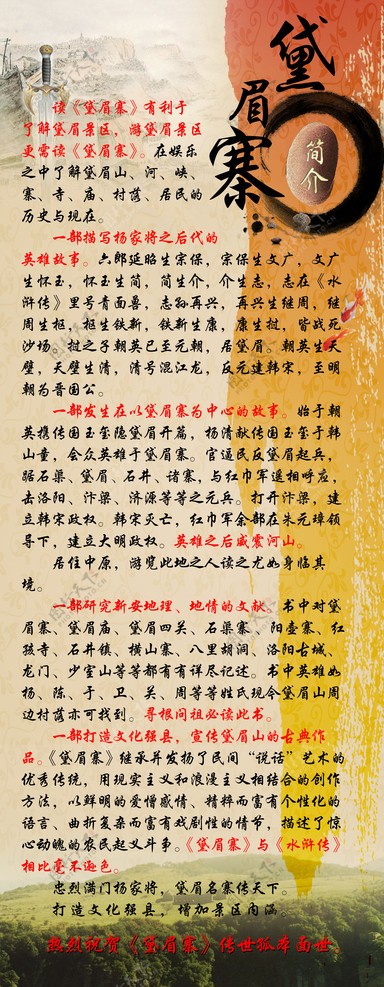 黛眉寨
简介
读《黛眉寨》有利于
了解黛眉景区，游黛眉景区
更需读《黛眉寨》。在娱乐
之中了解黛眉山、河、峡、
寨、寺、庙、村落、居民的
历史与现在。
一部描写杨家将之后代的
英雄故事。六郎延昭生宗保，宗保生文广，文广
生怀玉，怀玉生简，简生介，介生志，志在《水
浒传》里号青面兽，志孙再兴，再兴生继周，继周
生枢，枢生铁新，铁新生康，康生挝，皆战死
沙场。挝之子朝英已至元朝，居黛眉。朝英生天
璧，天璧生清，清号混江龙，反元建韩宋，至明
朝为晋国公。
一部发生在以黛眉寨为中心的故事。始于朝
英携传国玉玺隐黛眉开篇，杨清献传国玉玺于韩
山童，会众英雄于黛眉寨。官逼民反黛眉起兵，
踞石渠、黛眉、石井、诸寨，与红巾军遥相呼应，
去洛阳、汴梁、济源等等之元兵。打开汴梁，建
立韩宋政权。韩宋灭亡，红巾军余部在朱元璋领
导下，建立大明政权。英雄之后威震河山。
居住中原，游览此地之人读之尤如身临其
境。
一部研究新安地理、地情的文献。书中对黛
眉寨、黛眉庙、黛眉四关、石渠寨、阳壶寨、红
孩寺、石井镇、横山寨、八里胡同、洛阳古城、
龙门、少室山等等都有有详尽记述。书中英雄如
杨、陈、于、卫、关、周等等姓氏现今黛眉山周
边村落亦可找到。寻根问祖必读此书。
一部打造文化强县，宣传黛眉山的古典作
品。《黛眉寨》继承并发扬了民间“说话”艺术的
优秀传统，用现实主义和浪漫主义相结合的创作
方法，以鲜明的爱憎感情、精粹而富有个性化的
语言、曲折复杂而富有戏剧性的情节，描述了惊
心动魄的农民起义斗争。《黛眉寨》与《水浒传》
相比毫不逊色。
忠烈满门杨家将，黛眉名寨传天下。
打造文化强县，增加景区内涵。
热烈祝贺《黛眉寨》传世孤本面世。